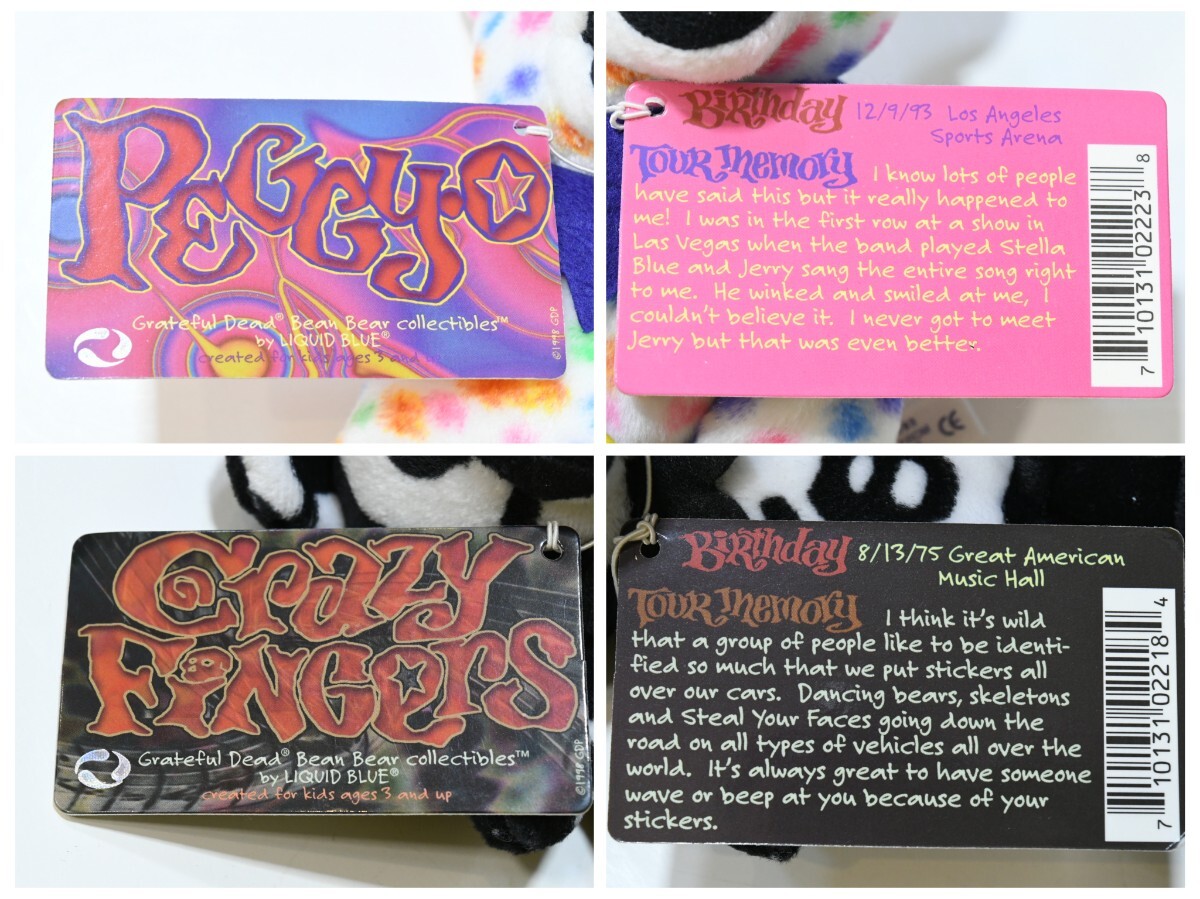 PEGGY·O
Grateful Dead® Bean Bear collectibles™
by LIQUID BLUE®
created for kids ages 3 and up
©1998 GDP
Birthday 12/9/93 Los Angeles
Sports Arena
Tour Memory I know lots of people
have said this but it really happened to
me! I was in the first row at a show in
Las Vegas when the band played Stella
Blue and Jerry sang the entire song right
to me. He winked and smiled at me, I
couldn't believe it. I never got to meet
Jerry but that was even better.
7 10131 02223 8
CE
Crazy
Fingers
Grateful Dead® Bean Bear collectibles™
by LIQUID BLUE®
created for kids ages 3 and up
©1998 GDP
Birthday 8/13/75 Great American
Music Hall
Tour Memory I think it's wild
that a group of people like to be identi-
fied so much that we put stickers all
over our cars. Dancing bears, skeletons
and Steal Your Faces going down the
road on all types of vehicles all over the
world. It's always great to have someone
wave or beep at you because of your
stickers.
7 10131 02218 4